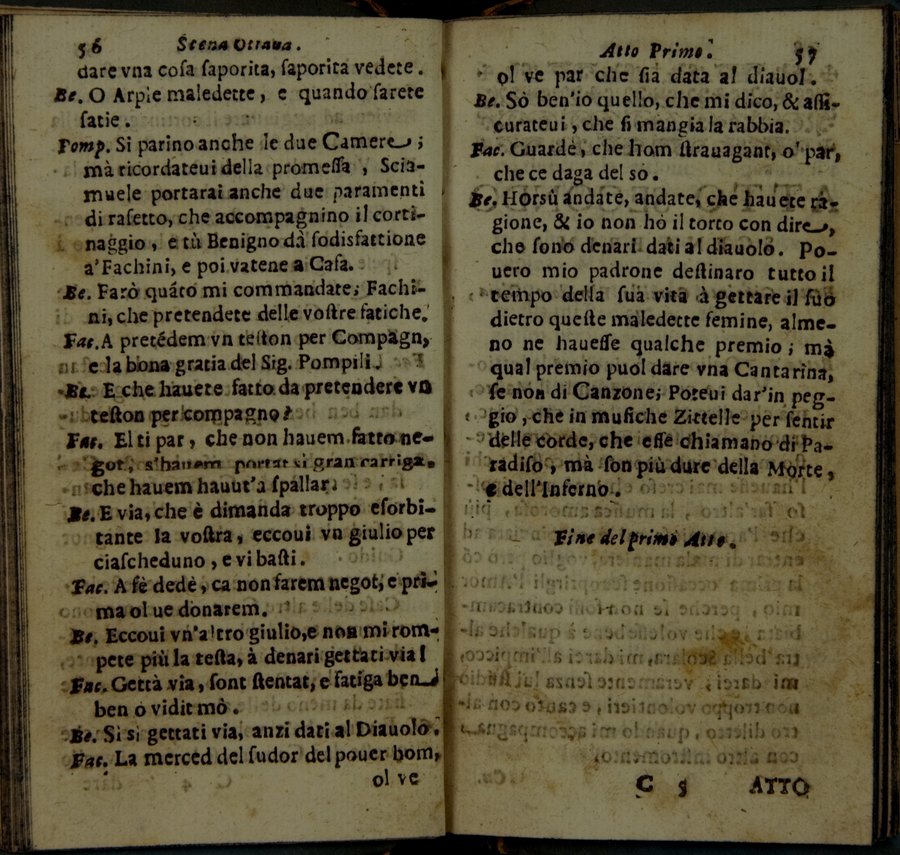 56 Scena Ottaua.
dare vna cosa saporita, saporita vedete.
Be. O Arpie maledette, e quando sarete
satie.
Pomp. Si parino anche le due Camere;
mà ricordateui della promessa, Scia-
muele portarai anche due paramenti
di rasetto, che accompagnino il corti-
naggio, e tù Benigno dà sodisfattione
a' Fachini, e poi vatene a Casa.
Be. Farò quáto mi commandate; Fachi-
ni, che pretendete delle vostre fatiche.
Fac. A pretédem vn teston per Compagn,
e la bona gratia del Sig. Pompili.
Be. E che hauete fatto da pretendere vn
teston per compagno?
Fac. El ti par, che non hauem fatto ne-
got, s'hauem portat si gran carriga,
che hauem hauut'a spallar.
Be. E via, che è dimanda troppo esorbi-
tante la vostra, eccoui vn giulio per
ciascheduno, e vi basti.
Fac. A fè dedè, ca non farem negot, e pri-
ma ol ue donarem.
Be. Eccoui vn'altro giulio, e non mi rom-
pete più la testa, à denari gettati via!
Fac. Gettà via, sont stentat, e fatiga ben
ben o vidit mò.
Be. Si si gettati via, anzi dati al Diauolo.
Fac. La merced del sudor del pouer hom,
ol ve
Atto Primo. 57
ol ve par che sia data al diauol.
Be. Sò ben'io quello, che mi dico, & assi-
curateui, che si mangia la rabbia.
Fac. Guardè, che hom strauagant, o' par,
che ce daga del so.
Be. Horsù andate, andate, che hauete ra-
gione, & io non hò il torto con dire,
che sono denari dati al diauolo. Po-
uero mio padrone destinaro tutto il
tempo della sua vita à gettare il suo
dietro queste maledette femine, alme-
no ne hauesse qualche premio; mà
qual premio puol dare vna Cantarina,
se non di Canzone; Poteui dar'in peg-
gio, che in musiche Zittelle per sentir
delle corde, che esse chiamano di Pa-
radiso, mà son più dure della Morte,
e dell'Inferno.
Fine del primo Atto.
C 5 ATTO